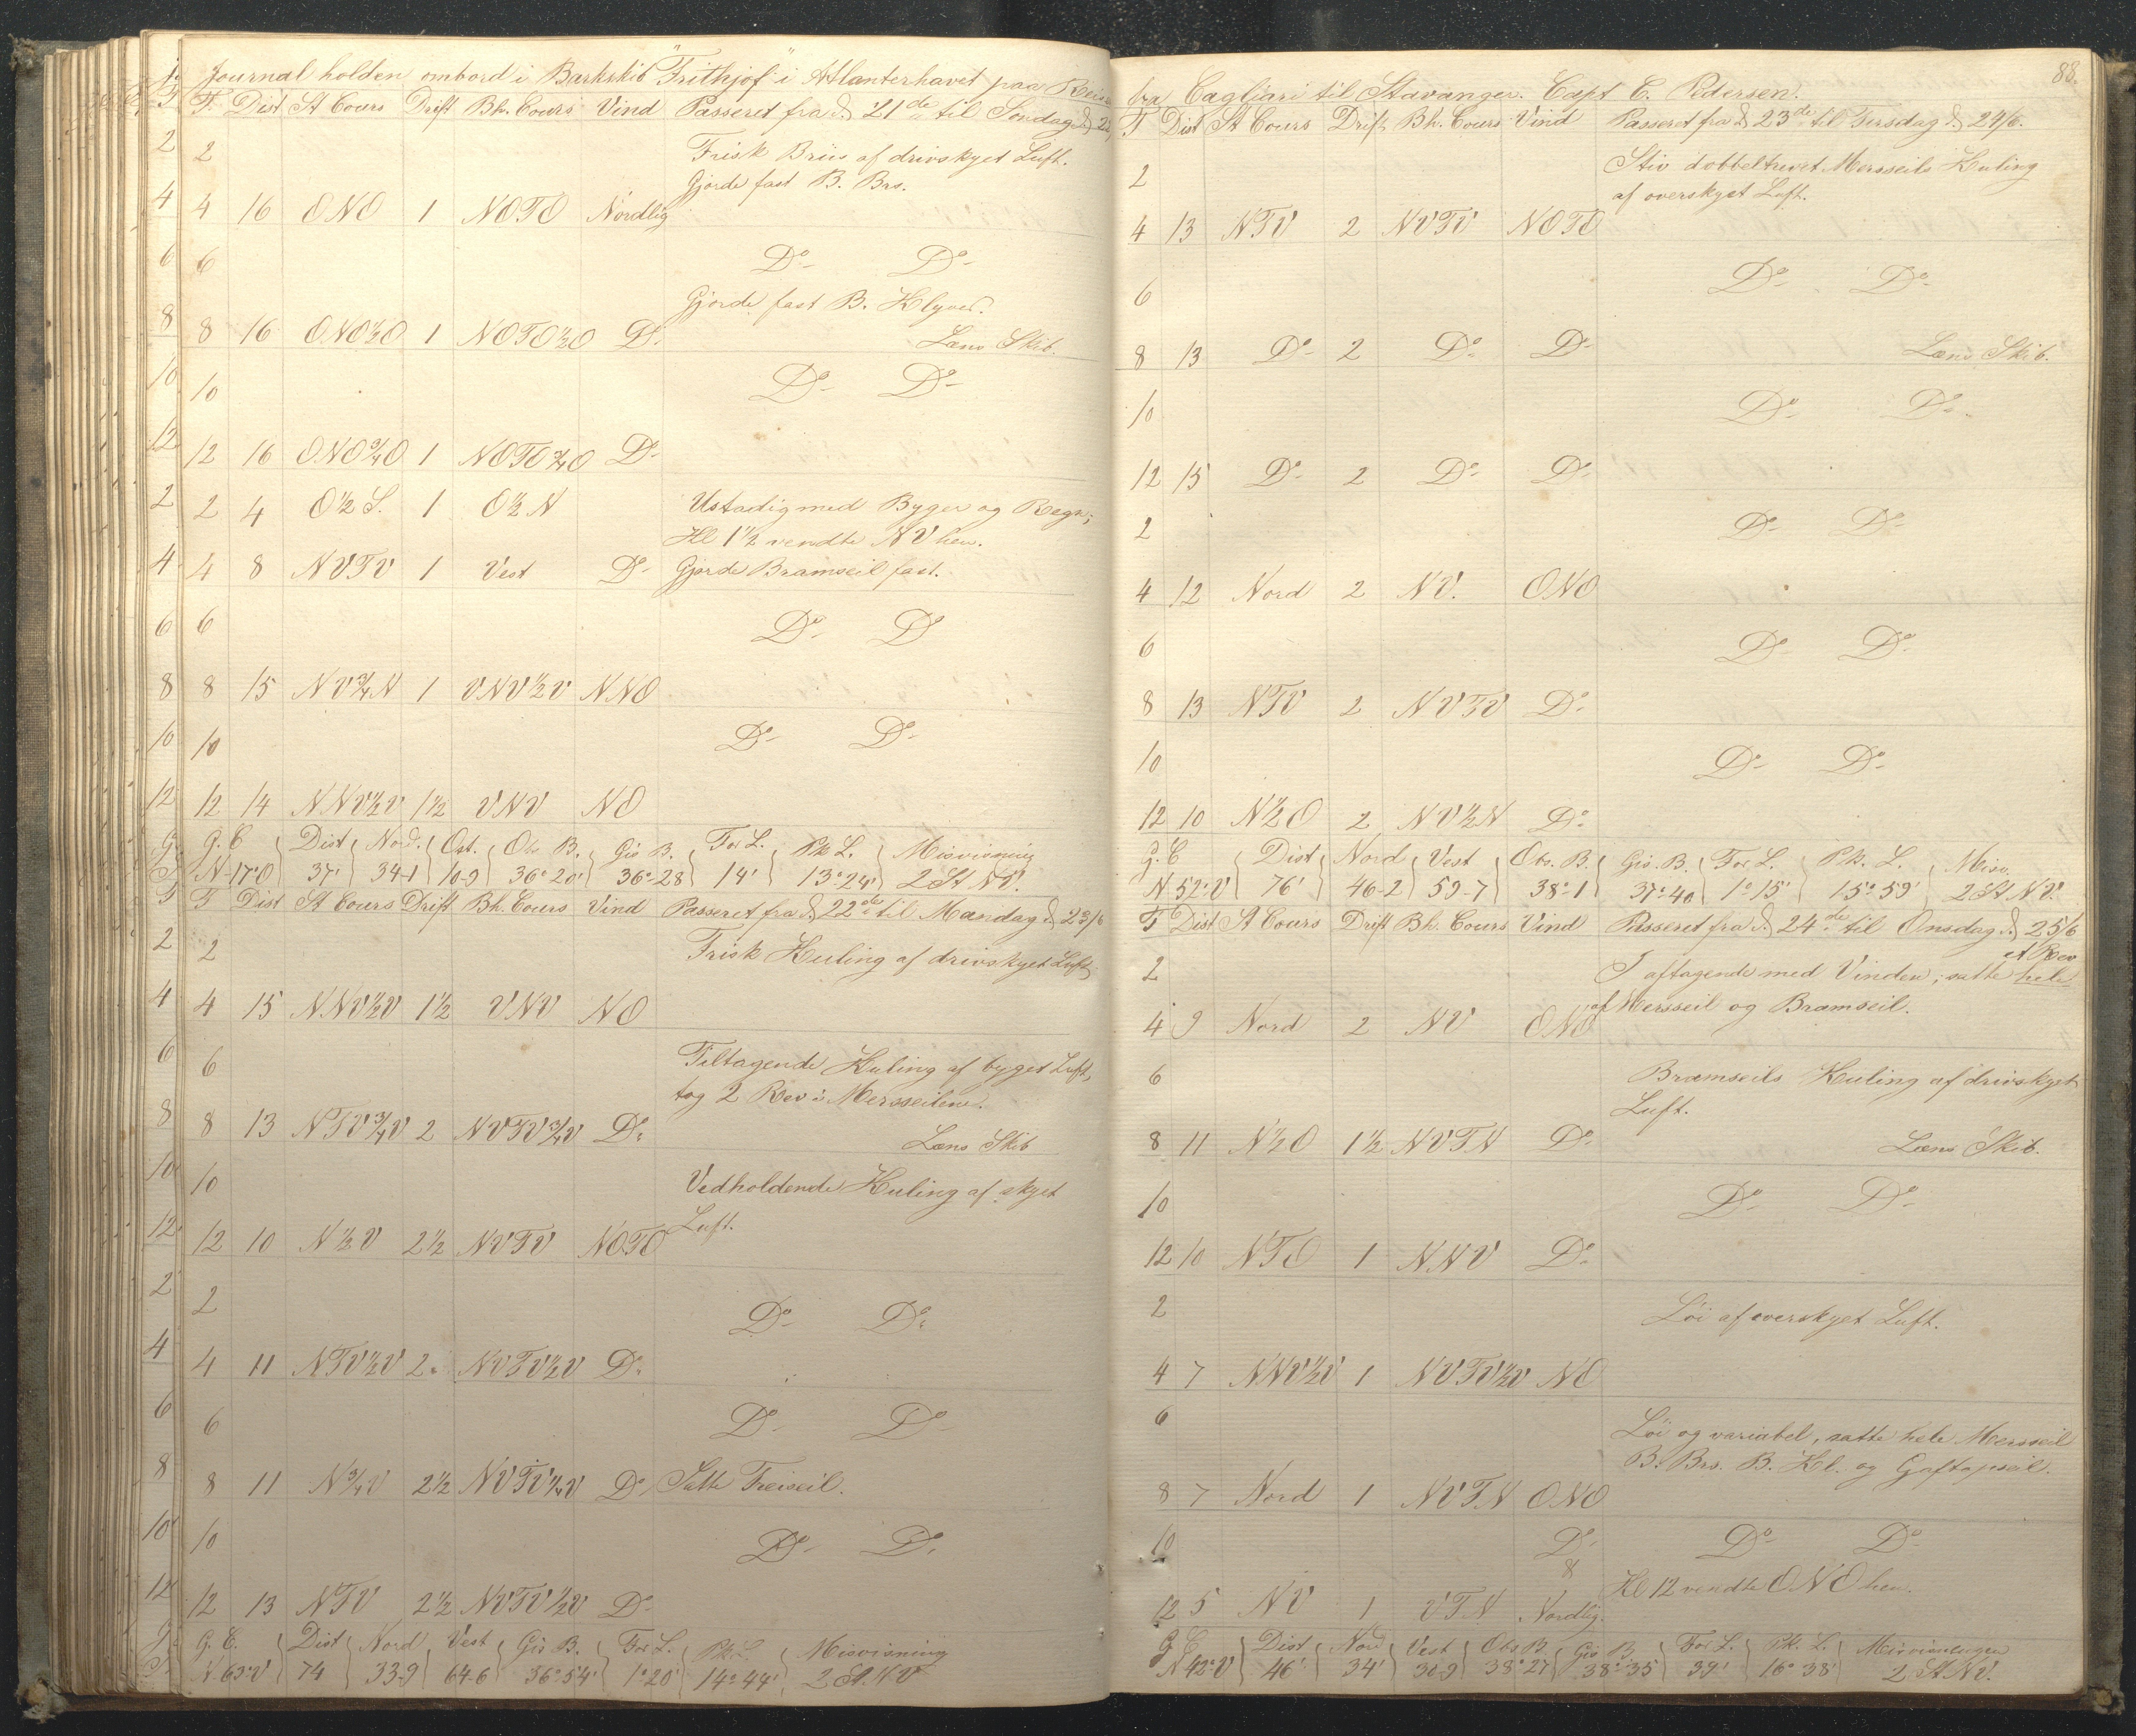 Journal holden ombord i Barkskib "Frithjof" i Atlanterhavet paa Reise
T. Dist St Cours Drift Bh. Cours Vind Passeret fra d. 21de til Søndag d. 22
2 Frisk Bris af drivskyet Luft.
Gjorde fast B. Brs.
4 16 ONO 1 NOTO Nordlig
6 Do Do
Gjorde fast B. Klyver.
8 16 ONO½O 1 NOTO½O Do Læns Skib.
10 Do Do
12 16 ONO¾O 1 NOTO¾O Do
2 4 O½S. 1 O½N Ustadig med Byger og Regn;
Kl 1½ vendte NV hen.
4 8 NVTV 1 Vest Do Gjorde Bramseil fast.
6 Do Do
8 15 NV¾N 1 VNV½V NNO
10 Do Do
12 14 NNV½V 1½ VNV NO
G. C Dist Nord. Ost. Obs B. Gis B. For L. Pk L. Misvisning
N-17°O 37' 34-1 10-9 36°20' 36°28 14' 13°24' 2 St NV.
T Dist St Cours Drift Bh. Cours Vind Passeret fra d. 22de til Mandag d. 23/6
2 Frisk Kuling af drivskyet Luft
4 15 NNV½V 1½ VNV NO
6 Tiltagende Kuling af byget Luft,
tog 2 Rev i Mersseilene.
8 13 NTV¾V 2 NVTV¾V Do
Læns Skib
10 Vedholdende Kuling af skyet
Luft.
12 10 N½V 2½ NVTV NOTO
2 Do Do
4 11 NTV½V 2 NVTV½V Do
6 Do Do
8 11 N¾V 2½ NVTV¼V Do Satte Treiseil.
10 Do Do
12 13 NTV 2½ NVTV½V Do
G. C. Dist Nord Vest Gis B. For L. Pk L. Misvisning
N.63°V 74 33-9 64-6 36°54' 1°20' 14°44' 2 St. NV
88.
fra Cagliari til Stavanger. Capt C. Pedersen.
T Dist St Cours Drift Bh. Cours Vind Passeret fra d. 23de til Tirsdag d. 24/6.
2 Stiv dobbeltrevet Mersseils Kuling
af overskyet Luft.
4 13 NTV 2 NVTV NOTO
6 Do Do
8 13 Do 2 Do Do Læns Skib.
10 Do Do
12 15 Do 2 Do Do
2 Do Do
4 12 Nord 2 NV. ONO
6 Do Do
8 13 NTV 2 NVTV Do
10 Do Do
12 10 N½O 2 NV½N Do
G. C Dist Nord Vest Obs. B. Gis. B. For L. Pk. L. Misv.
N 52°V 76' 46-2 59-7 38°1 37°40 1°15' 15°59' 2 St NV.
T Dist St Cours Drift Bh. Cours Vind Passeret fra d. 24de til Onsdag d. 25/6
et Rev
2 I aftagende med Vinden; satte hele
af Mersseil og Bramseil.
4 9 Nord 2 NV ONO
6 Bramseils Kuling af drivskyet
Luft.
8 11 N½O 1½ NVTN Do Læns Skib.
10 Do Do
12 10 NTO 1 NNV Do
2 Løi af overskyet Luft.
4 7 NNV½V 1 NVTV½V NO
6 Løi og variabel, satte hele Mersseil
B. Brs. B. Kl. og Gaftopseil.
8 7 Nord 1 NVTN ONO
10 Do Do Do
8 Kl 12 vendte ONO hen.
12 5 NV 1 VTN Nordlig.
G C Dist Nord Vest Obs B. Gis B. For L. Pk. L. Misvisningen
N 42°V 46' 34' 30-9 38°27 38°35 39' 16°38' 2 St NV.